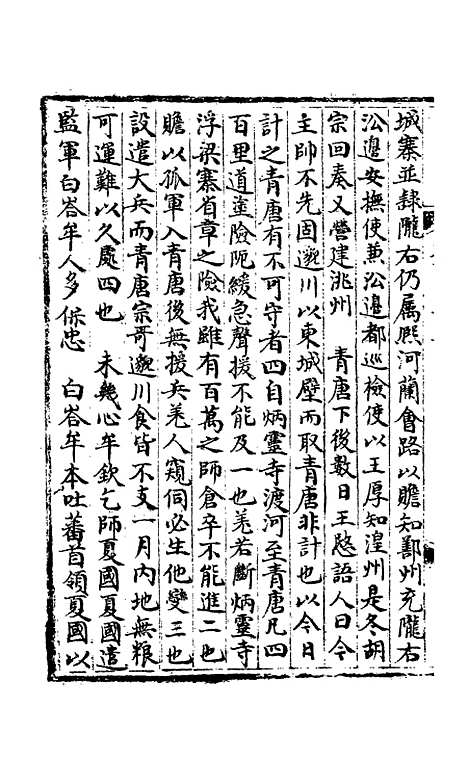 城寨並隸隴右仍属熈河蘭會路以贍知鄯州充隴右
㳂邊安撫使兼㳂邊都巡檢使以王厚知湟州是冬胡
宗回奏又營建洮州　青唐下後數日王愍語人曰今
主帥不先固邈川以東城壁而取青唐非計也以今日
計之青唐有不可守者四自炳靈寺渡河至青唐凡四
百里道塗險阨緩急聲援不能及一也羌若斷炳靈寺
浮梁塞省章之險我雖有百萬之師倉卒不能進二也
贍以孤軍入青唐後無援兵羌人窺伺必生他變三也
設遣大兵而青唐宗哥邈川食皆不支一月内地無粮
可運難以久處四也　未幾心牟欽乞師夏國夏國遣
監軍白峇牟人多保忠　白峇牟本吐蕃首領夏國以